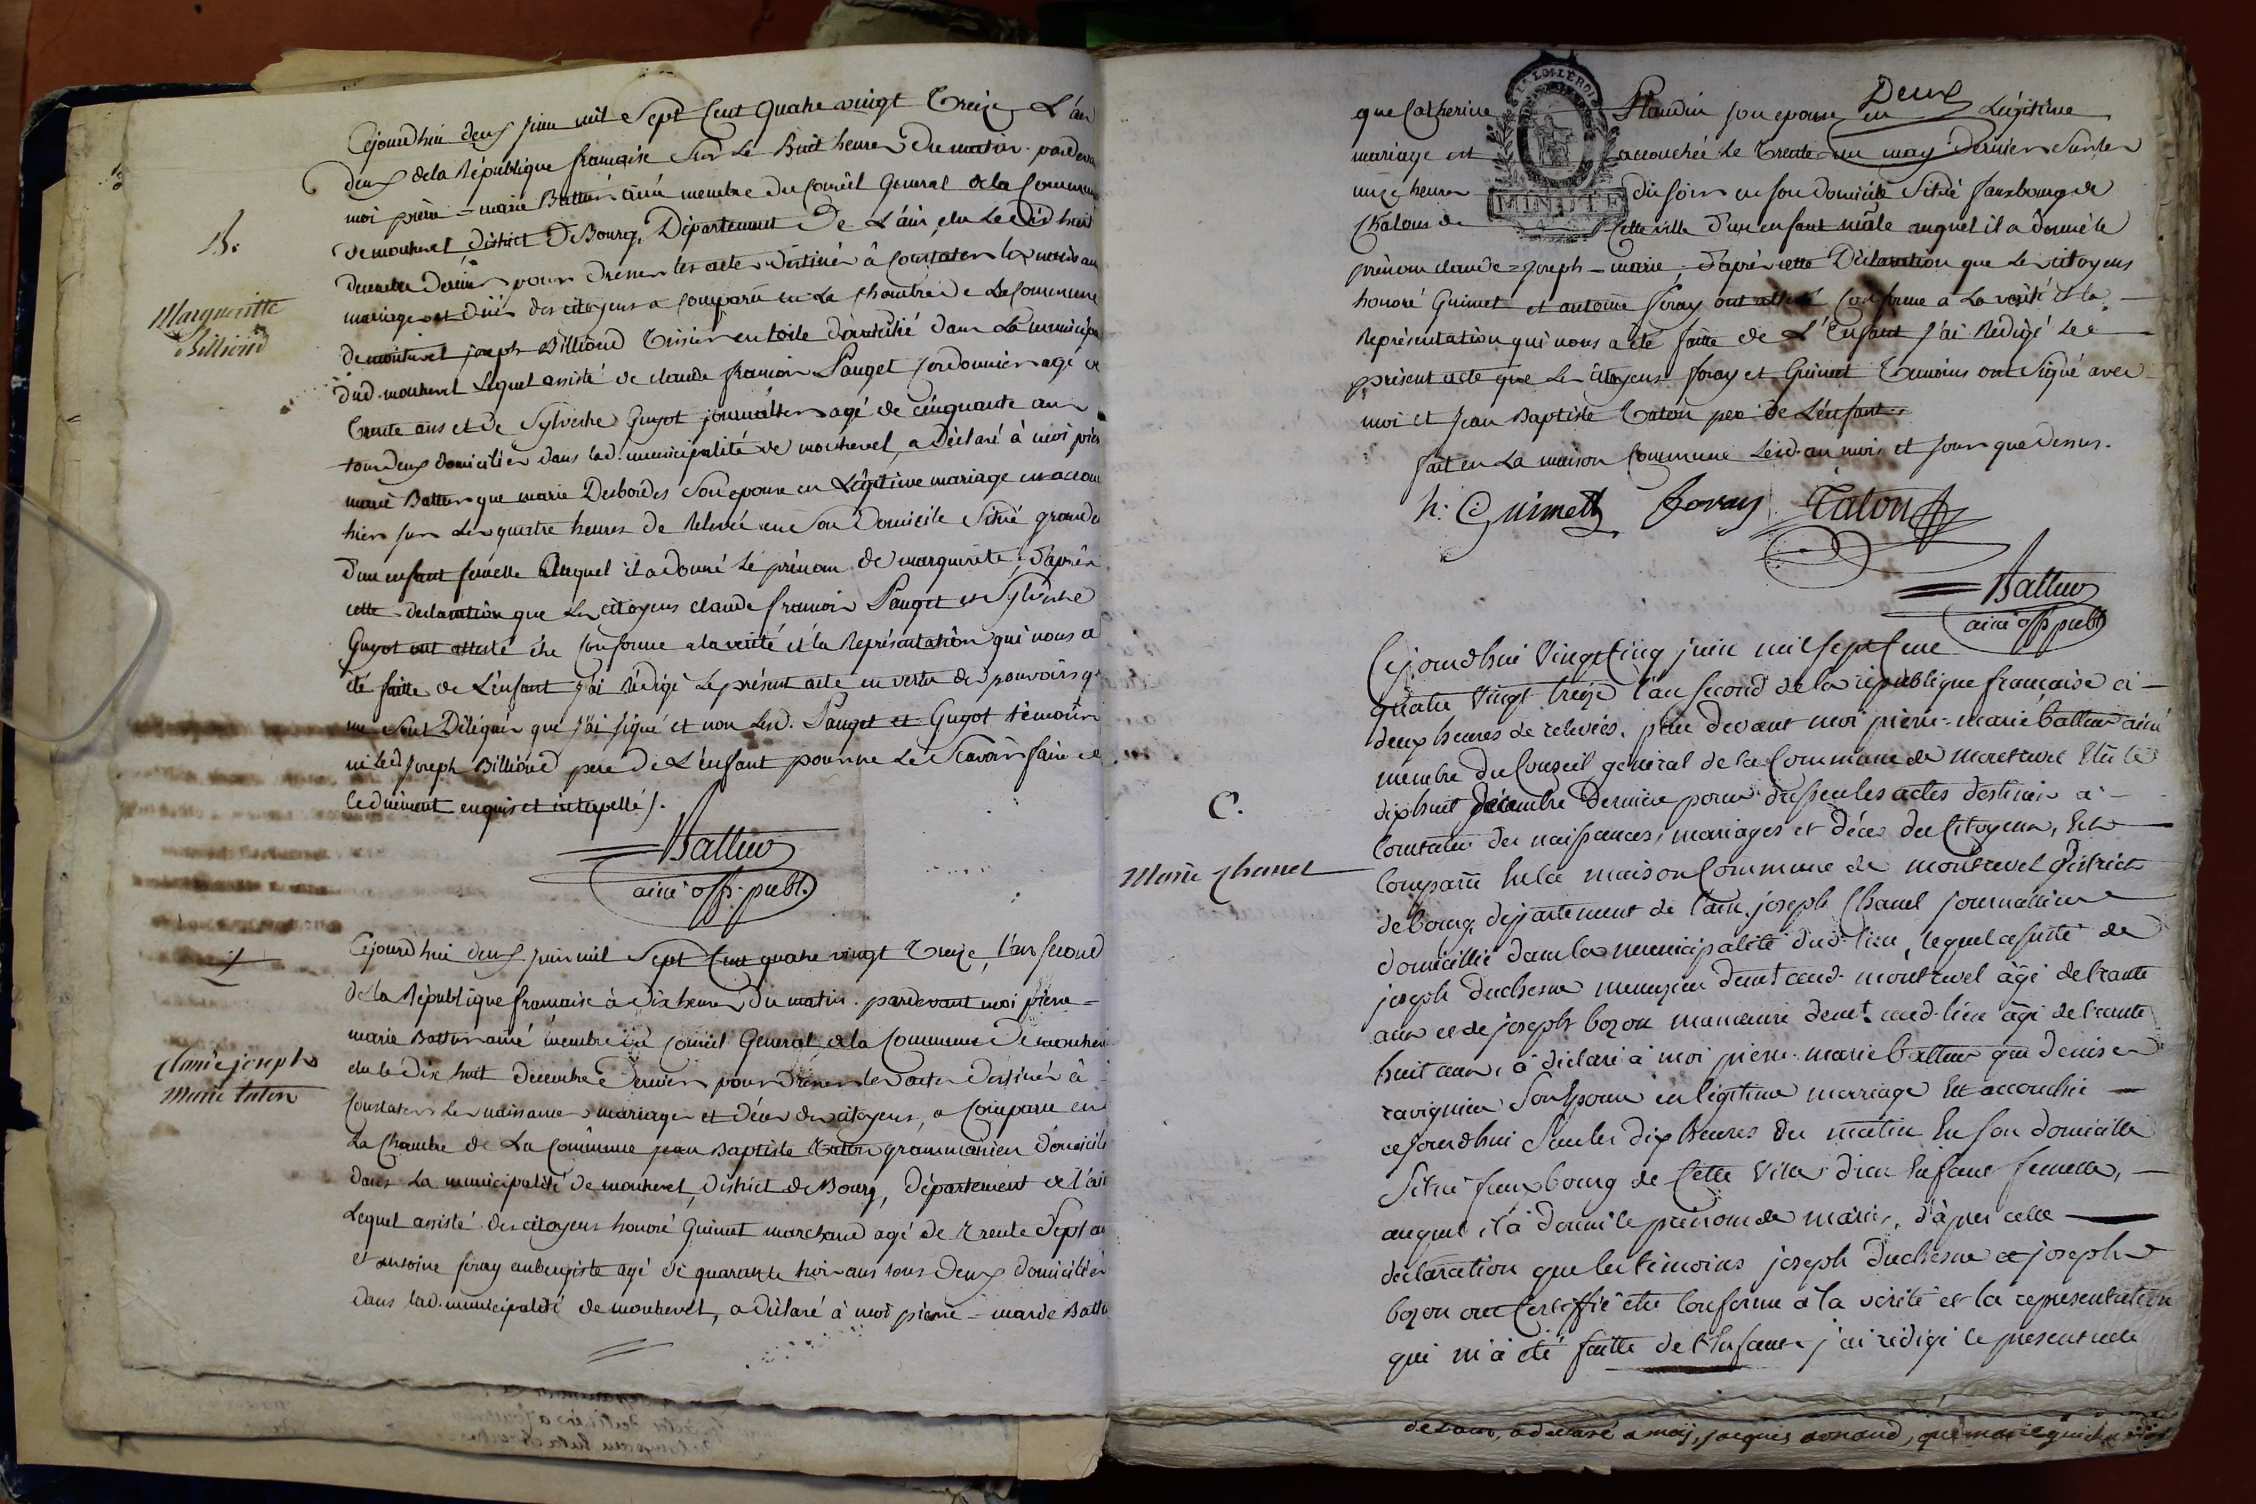 B.
Margueritte
Billioud
Cejourdhui deux juin mil Sept Cent Quatre vingt Treize L'an
deux de la République françoise Sur Le Huit heures du matin pardevant
moi pierre = marie Battur ainé membre du Conseil General de la Commune
de montrevel district De Bourg, Département De L'ain, élu Le dix huit
decembre dernier pour dresser les actes destinés à Constater les naissances
mariages et décès des citoyens a comparu en La chambre de La Commune
de montrevel joseph Billioud Tissier en toile domicilié dans La municipalité
dud. montrevel Lequel assisté de claude françois Pauget Cordonnier agé de
trente ans et de Sylvestre Guyot journallier agé de cinquante ans
tous deux domiciliés dans lad. municipalité de montrevel, a Déclaré à moi pierre
marie Battur que marie Desbordes Son epouse en Légitime mariage est accouchée
hier sur Les quatre heures de Relevée en Son Domicile Situé grande
d'un enfant femelle Auquel il a donné Le prénom de margueritte, d'après
cette declaration que Les citoyens claude françois Pauget et Sylvestre
Guyot ont attesté être Conforme a la verité et la Représentation qui nous a
été faitte de L'enfant j'ai rédigé Le présent acte en vertu des pouvoirs qui
me sont Délégués que j'ai signé et non Lesd. Pauget et Guyot témoins
ni Led Joseph Billioud pere De L'enfant pour ne Le Scavoir faire de
ce duement enquis et interpellé /.
Battur
ainé off. publ.
T
Claude joseph
Marie taton
Cejourdhui deux juin mil Sept Cent quatre vingt Treize, l'an second
de la République françoise à dix heures du matin. pardevant moi pierre =
marie Battur ainé membre du Conseil General de la Commune De montrevel
élu le dix huit decembre Dernier pour dresser les actes Destinés à
Constater Les naissances mariages et Décès des citoyens, a Comparu en
La Chambre de La Commune jean Baptiste Taton grammairien domicilié
dans La municipalité de montrevel, District de Bourg, département de l'ain
Lequel assisté des citoyens honoré Guimet marchand agé de Trente Sept ans
et antoine foray aubergiste agé de quarante trois ans tous deux domiciliés
dans lad. municipalité de montrevel, a déclaré à moi pierre = marie Battur
Deux
que Catherine Plaudin son epouse en Légitime
mariage est accouchée Le Trente un may dernier Sur les
onze heures du soir en son domicile Situé fauxbourg de
Chalons de Cette ville d'un enfant mâle auquel il a donné le
MINUTE
prénom claude = joseph = marie, d'après cette Déclaration que Les citoyens
honoré Guimet et antoine foray ont attesté Conforme a La verité et la
Représentation qui nous a été faitte de L'Enfant j'ai Rédigé Le
présent acte que Les citoyens foray et Guimet Temoins ont Signé avec
moi et Jean Baptiste Taton pere de L'enfant.
fait en La maison Commune Lesd. an mois et jour que Dessus.
h. Guimet foray Taton
Battur
ainé off publ
C.
Marie Chanel
Cejourdhui Vingt Cinq juin mil sept Cent
quatre Vingt treize l'an second de la république française à
deux heures de relevées. par devant moi pierre = marie battur ainé
membre du Conseil général de la Commune de montrevel Elu le
dixhuit décembre dernier pour dresser les actes destinés à
Constater les naissances, mariages et décès des Citoyens, Est
Comparu En la maison Commune de montrevel district
de bourg, département de l'ain. joseph Chanel journallier
domicillié dans la municipalité dud. lieu, lequel assisté de
joseph duchesne menuzier demt aud. montrevel âgé de trante
ans et de joseph bozon manœuvre demt. aud. lieu âgé de trante
huit ans, à déclaré à moi pierre marie battur que denise
ravignier Son Epouse en légitime mariage Est accouchée
cejourdhui Sur les dix heures du matin En son domicille
Situé fauxbourg de Cette Ville d'un Enfant femelle,
auquel il à donné le prénom de marie, d'après cette
déclaration que les témoins joseph duchesne et joseph
bozon ont Certiffié être Conforme à la vérité et la représentation
qui m'a été faitte de l'Enfant j'ai rédigé le present acte
a déclaré a moy, jacques arnaud, que marie